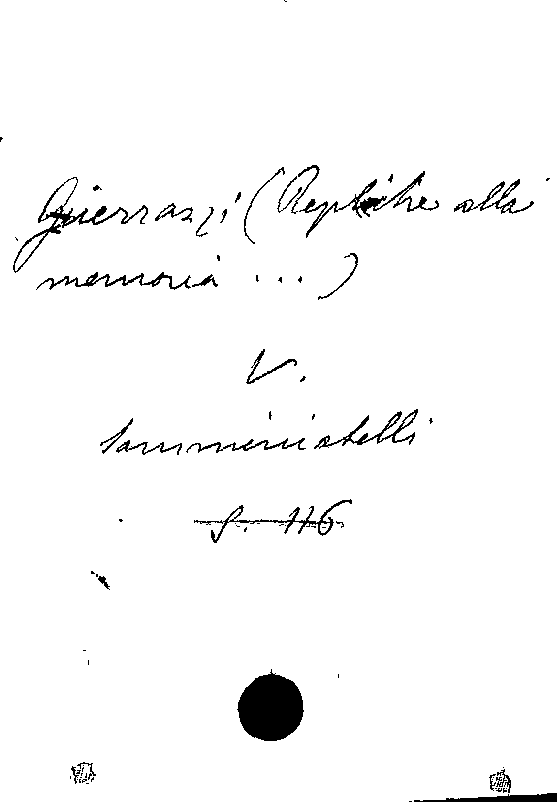 Guerrazzi (Repliche alla
memoria ...)
V.
Sanminiatelli
S. 116